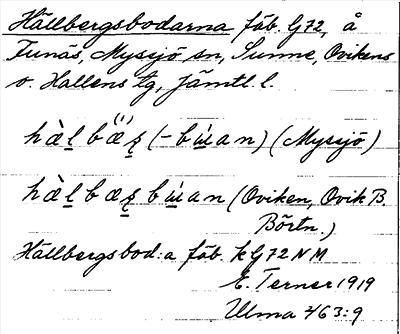 Hällbergsbodarna fäb. G72, å
Funäs, Myssjö sn, Sunne, Ovikens
o. Hallens tg, Jämtl. l.
hæ̀l̲b(´´)æş (-bẃan) (Myssjö)
hæ̀l̲bæşbẃan (Oviken, Ovik B.
Börtn.)
Hällbergsbod:a fäb. k G72 NM
E. Terner 1919
Ulma 263:9